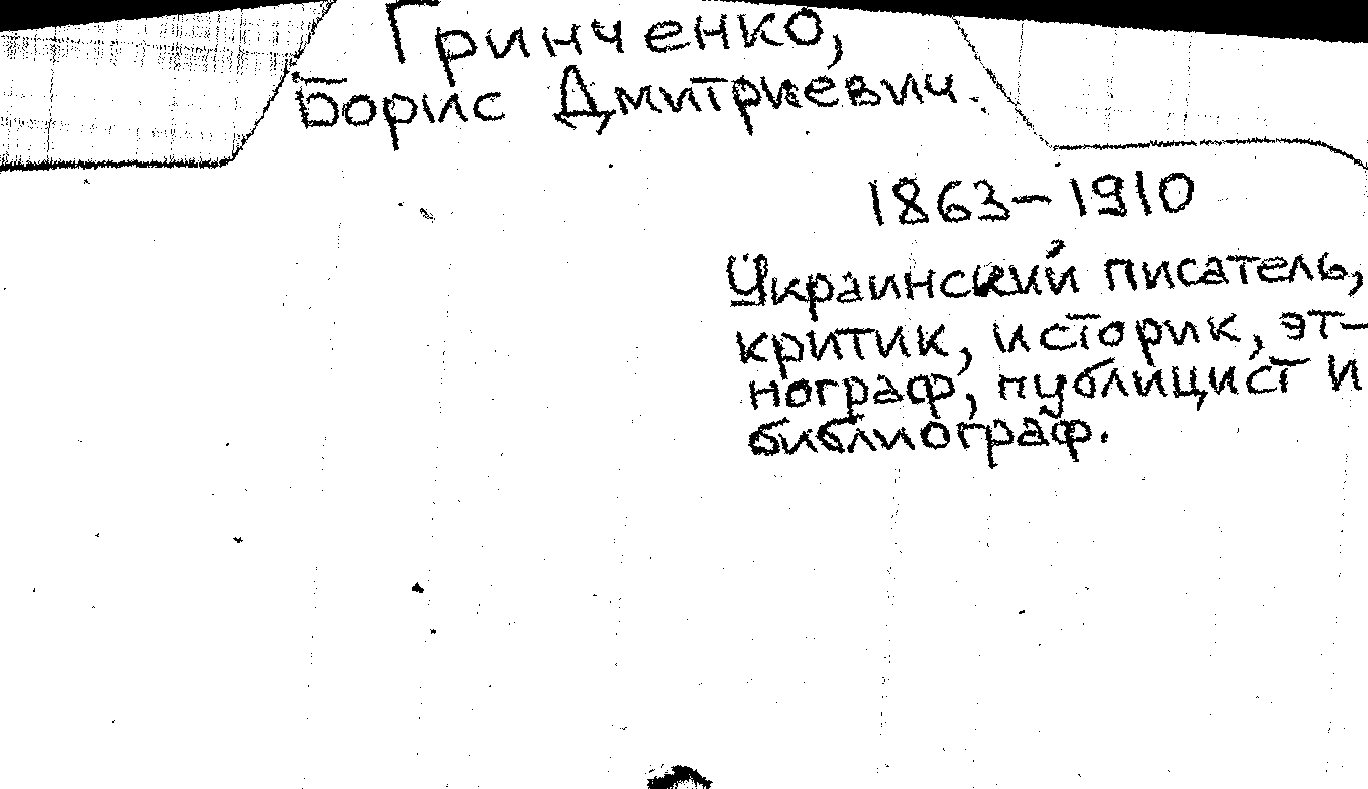 Гринченко,
Борис Дмитриевич.
1863–1910
Украинский писатель,
критик, историк, эт-
нограф, публицист и
библиограф.